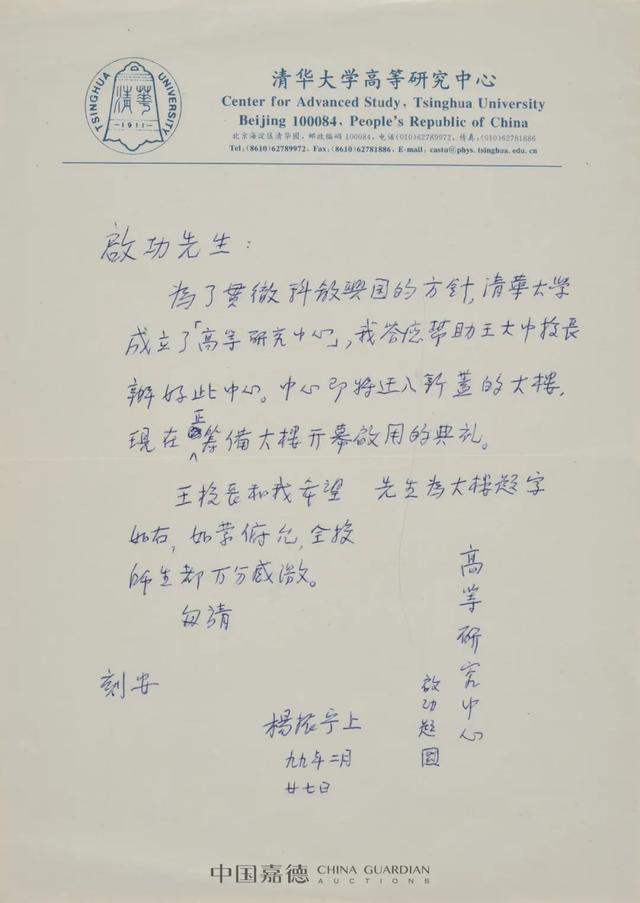 TSINGHUA UNIVERSITY
清華
-1911-
清华大学高等研究中心
Center for Advanced Study, Tsinghua University
Beijing 100084, People's Republic of China
北京海淀区清华園, 邮政编码 100084, 电话(010)62789972, 传真:(010)62781886
Tel:(8610)62789972, Fax:(8610)62781886, E-mail: castu@phys.tsinghua.edu.cn
啟功先生:
為了贯徹科教興国的方針,清華大学
成立了「高等研究中心」,我答应幫助王大中校長
辦好此中心。中心即将迁入新蓋的大樓,
現在正籌備大楼开幕啟用的典礼。
王校長和我希望 先生為大楼题字
如右,如蒙俯允,全校
师生都万分感激。
匆请
刻安
楊振宁上
九九年二月
廿七日
高等研究中心
啟功题圖
中国嘉德 CHINA GUARDIAN
AUCTIONS